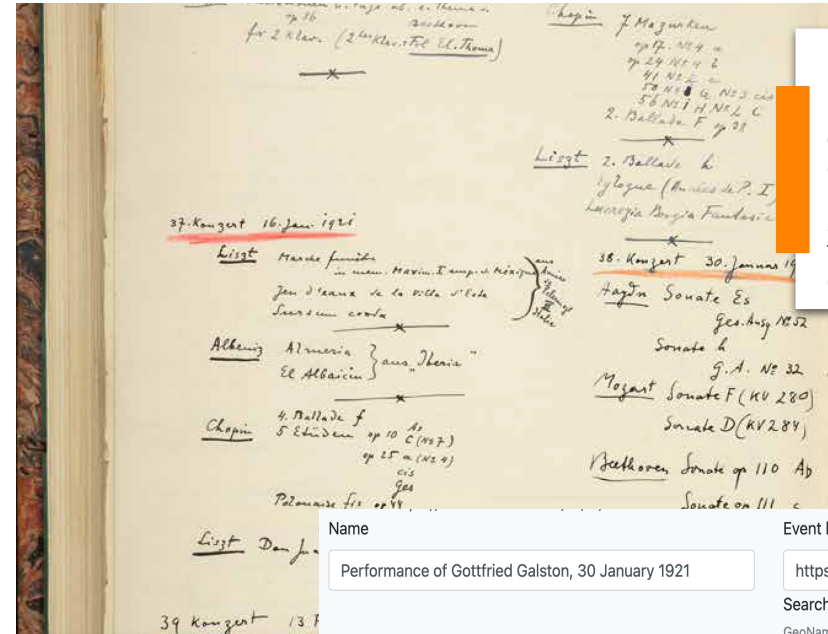 op 86 Beethoven
für 2 Klav. (2tes Klav.: Frl El. Thoma)
37. Konzert 16. Jan. 1921
Liszt Marche funèbre
in mem. Maxim. I emp. de Méxique
Jeu d'eaux de la Villa d'Este
Sursum corda
aus
Années
Pélerinage
III
Italie
Albeniz Almeria
El Albaicin
aus „Iberia"
Chopin 4. Ballade f
5 Etüden op 10 As
C (No 7)
op 25 a (No 4)
cis
Ges
Polonaise fis op 44
Liszt Don Jua
39 Konzert 13. F
Chopin 7 Mazurken
op 17. No 4 a
op 24 No 4 b
41 No 2 e
50 No 1 G No 3 cis
56 No 1 H No 2 C
2. Ballade F op 38
Liszt 2. Ballade h
Eglogue (Années de P. I)
Lucrezia Borgia Fantasie
38. Konzert 30. Januar 19
Haydn Sonate Es
Ges. Ausg No 52
Sonate h
G. A. No 32
Mozart Sonate F (KV 280)
Sonate D (KV 284)
Beethoven Sonate op 110 As
Sonate op 111 c
Name
Performance of Gottfried Galston, 30 January 1921
Event
https
Search
GeoNam